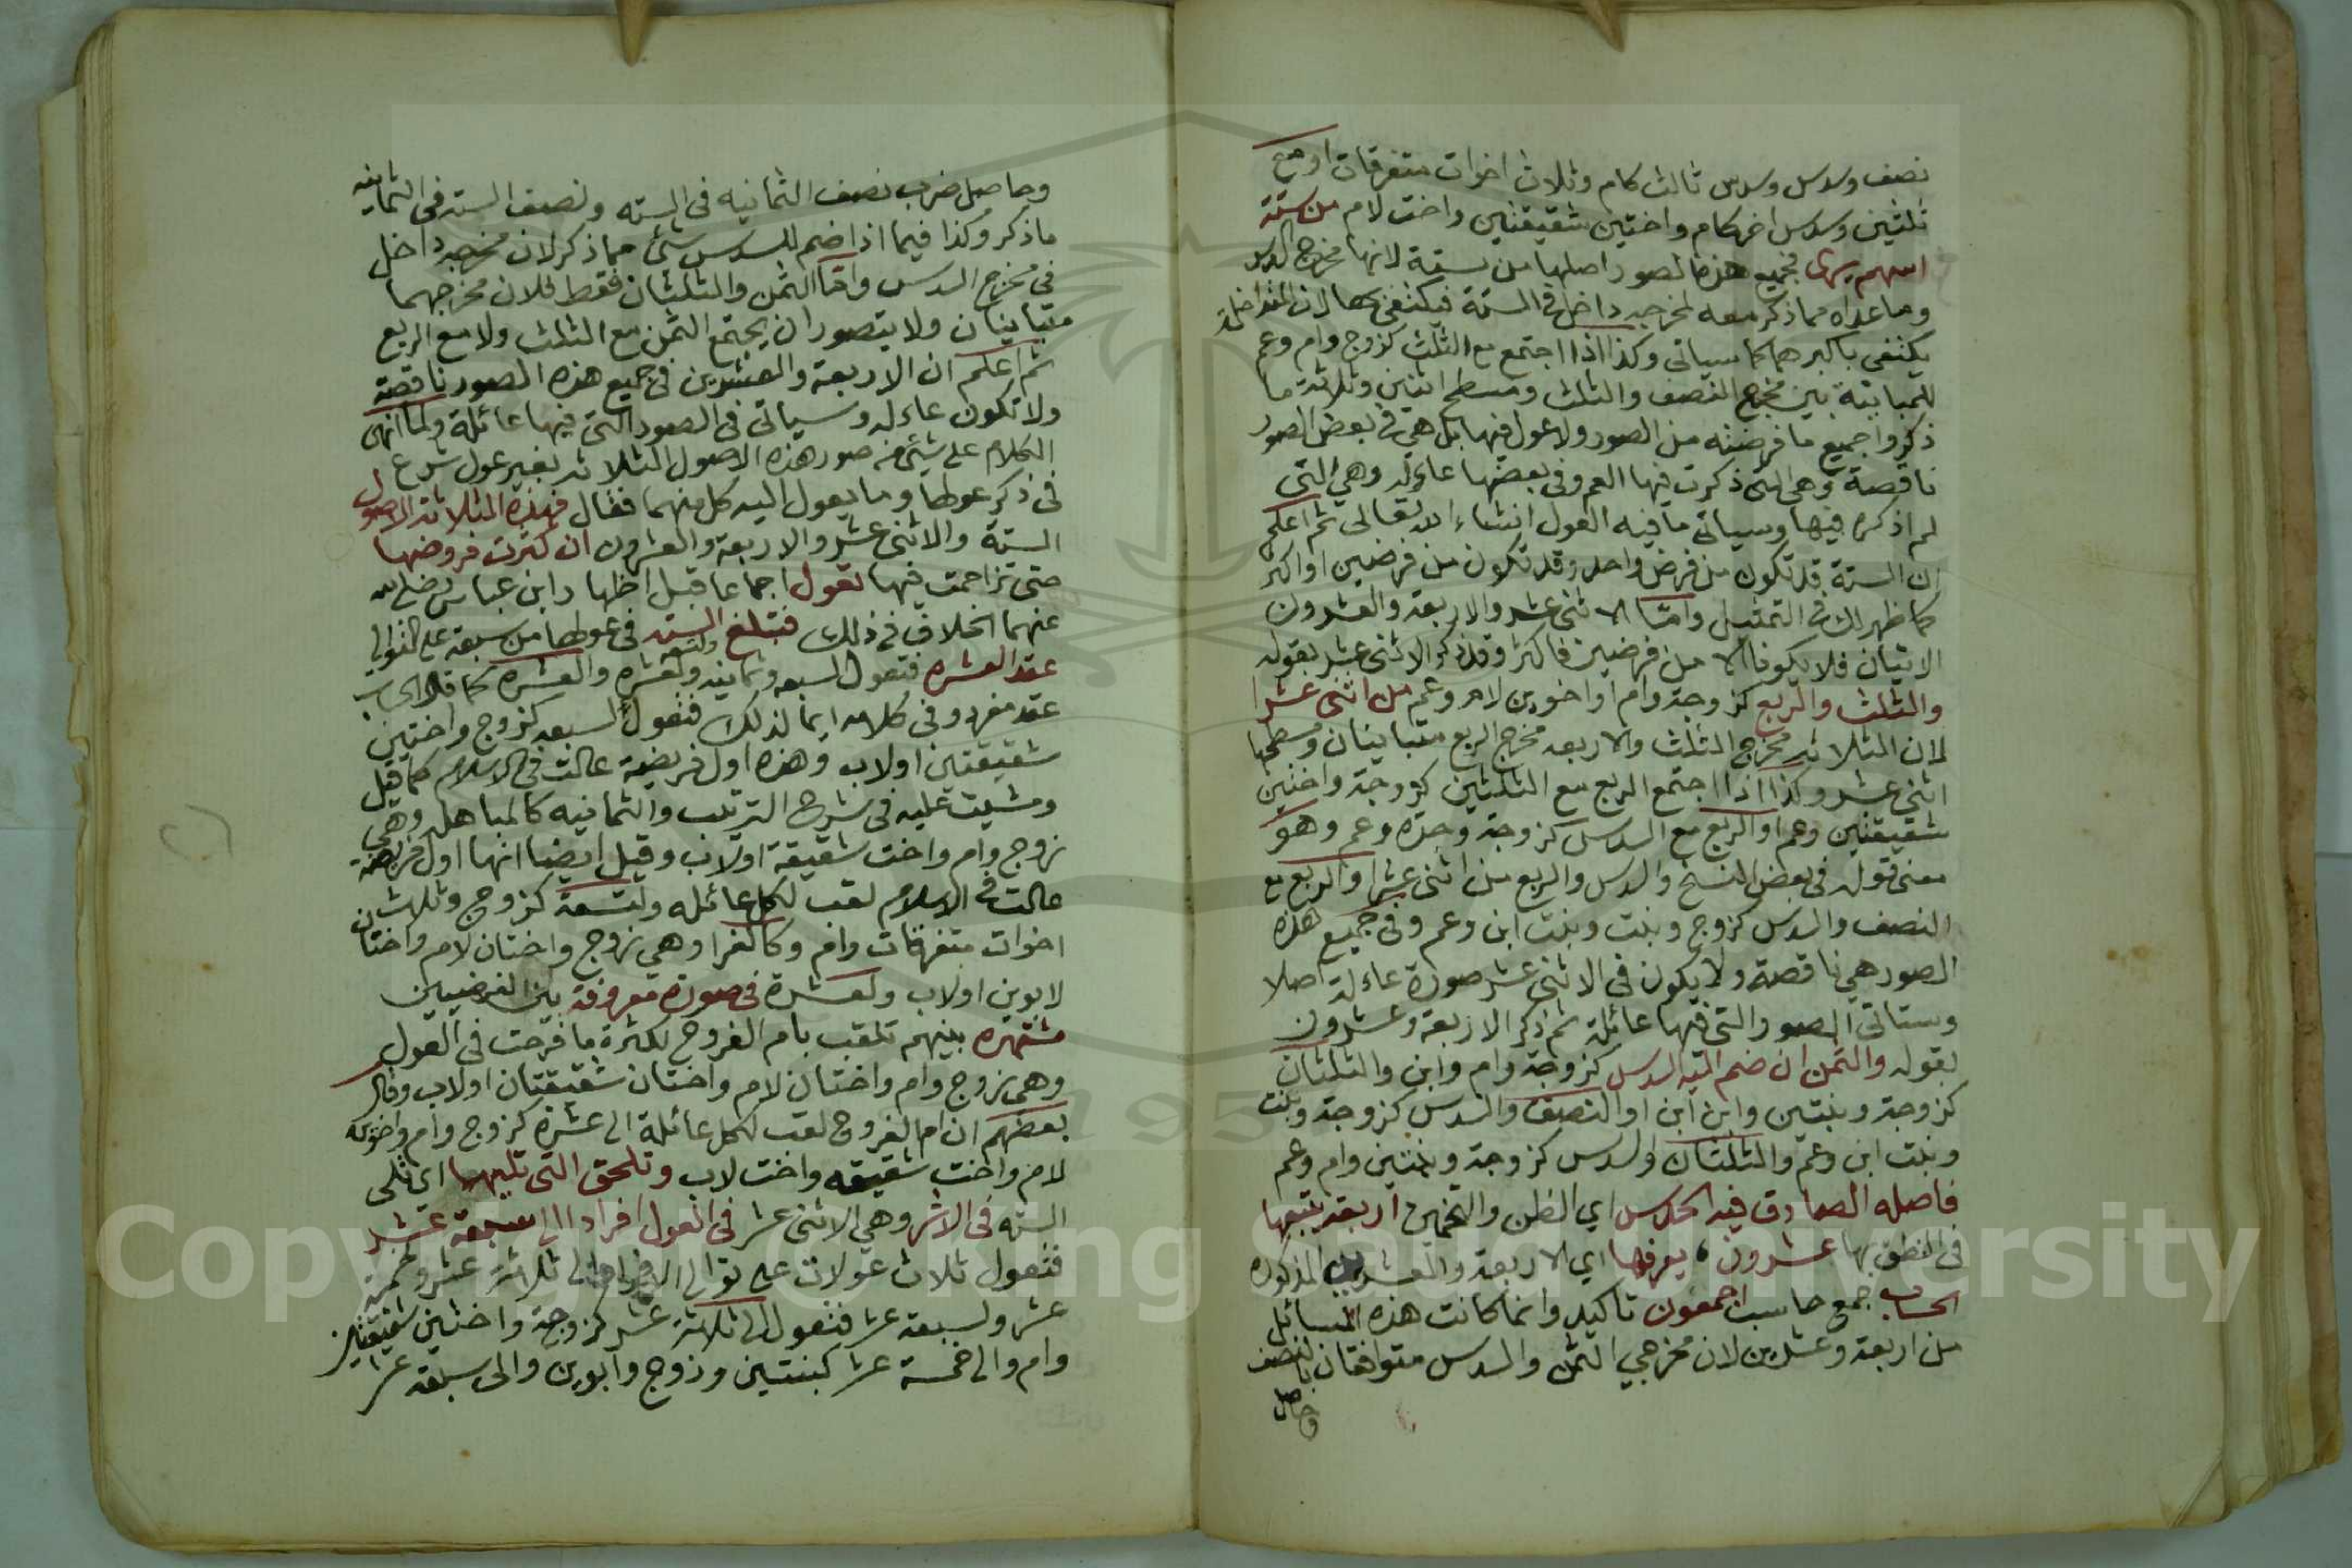 نصف وسدس وسدس ثالث كام وثلاث اخوات متفرقات او مع
ثلثين وسدس اخر كام واختين شقيقتين واخت لام من ستة
اسهم يرى فجميع هذه الصور اصلها من ستة لانها مخرج السدس
وما عداه مما ذكر معه لمخرجه داخل في الستة فيكتفي بها لان المتداخلة
يكتفى باكبرهما كما سياتي وكذا اذا اجتمع مع الثلث كزوج وام وعم
للمباينة بين مخرج النصف والثلث ومسطح اثنين وثلاثة ما
ذكروا جميع ما فرضته من الصور ولا عول فيها بل هي في بعض الصور
ناقصة وهي التي ذكرت فيها العم وفي بعضها عادله وهي التي
لم اذكره فيها وسياتي ما فيه العول انشاء الله تعالى ثم اعلم
ان الستة قد تكون من فرض واحد وقد تكون من فرضين او اكثر
كما ظهر لك في التمثيل واما الاثنى عشر والاربعة والعشرون
الاتيان فلا يكونا الا من فرضين فاكثر وقد ذكر الاثنى عشر بقوله
والثلث والربع كزوجة وام او اخوين لام وعم من اثنى عشرا
لان الثلاثه مخرج الثلث والاربعه مخرج الربع متباينان ومسطحها
اثنى عشر وكذا اذا اجتمع الربع مع الثلثين كزوجة واختين
شقيقتين وعم او الربع مع السدس كزوجة وجده وعم وهو
معنى قوله في بعض النسخ والسدس والربع من اثنى عشرا او الربع مع
النصف والسدس كزوج وبنت وبنت ابن وعم وفي جميع هذه
الصور هي ناقصة ولا يكون في الاثنى عشر صورة عادلة اصلا
وستاتي الصور التي فيها عائلة ثم ذكر الاربعة وعشرون
بقوله والثمن ان ضم اليه السدس كزوجة وام وابن والثلثان
كزوجة وبنتين وابن ابن او النصف والسدس كزوجة وبنت
وبنت ابن وعم والثلثان والسدس كزوجة وبنتين وام وعم
فاصله الصادق فيه الحدس اي الظن والتخمين اربعة يتبعها
في النطق بها عشرون يعرفها اي الاربعة والعشرين المذكورة
الحساب جمع حاسب اجمعون تاكيد وانما كانت هذه المسائل
من اربعة وعشرين لان مخرجي الثمن والسدس متوافقان بالنصف
وحاصل
وحاصل ضرب نصف الثمانيه في السته ونصف السته في الثمانيه
ما ذكر وكذا فيما اذا ضم للسدس شئ مما ذكر لان مخرجه داخل
في مخرج السدس واما الثمن والثلثان فقط فلان مخرجهما
متباينان ولا يتصور ان يجتمع الثمن مع الثلث ولا مع الربع
ثم اعلم ان الاربعة والعشرين في جميع هذه الصور ناقصة
ولا تكون عادله وسياتي في الصور التي فيها عائلة ولما انهى
الكلام على شئ من صور هذه الاصول الثلاثه بغير عول شرع
في ذكر عولها وما يعول اليه كل منهما فقال فهذه الثلاثة الاصول
الستة والاثنى عشر والاربعة والعشرون ان كثرت فروضها
حتى تزاحمت فيها تعول اجماعا قبل اظهار ابن عباس رضي الله
عنهما الخلاف في ذلك فتبلغ السته في عولها من سبعة على التوالي
عقد العشره فتعول لسبعه وثمانيه ولتسعه ولعشره والعشرة كما قال
عقد مفرد وفي كلامه ايما لذلك فتعول لسبعه كزوج واختين
شقيقتين او لاب وهذه اول فريضة عالت في الاسلام كما قيل
ومشيت عليه في شرح الترتيب والثمانيه كالمباهله وهي
زوج وام واخت شقيقة او لاب وقيل ايضا انها اول فريضة
عالت في الاسلام لقب لكل عائله ولتسعة كزوج وثلاث
اخوات متفرقات وام وكالغرا وهي زوج واختان لام واختان
لابوين او لاب ولعشرة في صورة معروفة بين الفرضيين
مشتهره بينهم تلقب بام الفروخ لكثرة ما فرخت في العول
وهي زوج وام واختان لام واختان شقيقتان او لاب وقال
بعضهم ان ام الفروخ لقب لكل عائلة الى عشرة كزوج وام واخوين
لام واخت شقيقه واخت لاب وتلحق التي تليها اي تلي
السته في الاثر وهي الاثنى عشر في العول افرادا الى سبعة عشر
فتعول ثلاث عولات على توالي الافراد الى ثلاثة عشر ولخمسة
عشر ولسبعة عشر فتعول الى ثلاثة عشر كزوجة واختين شقيقتين
وام والى خمسة عشر كبنتين وزوج وابوين والى سبعة عشر
Copyright © King Saud University
195